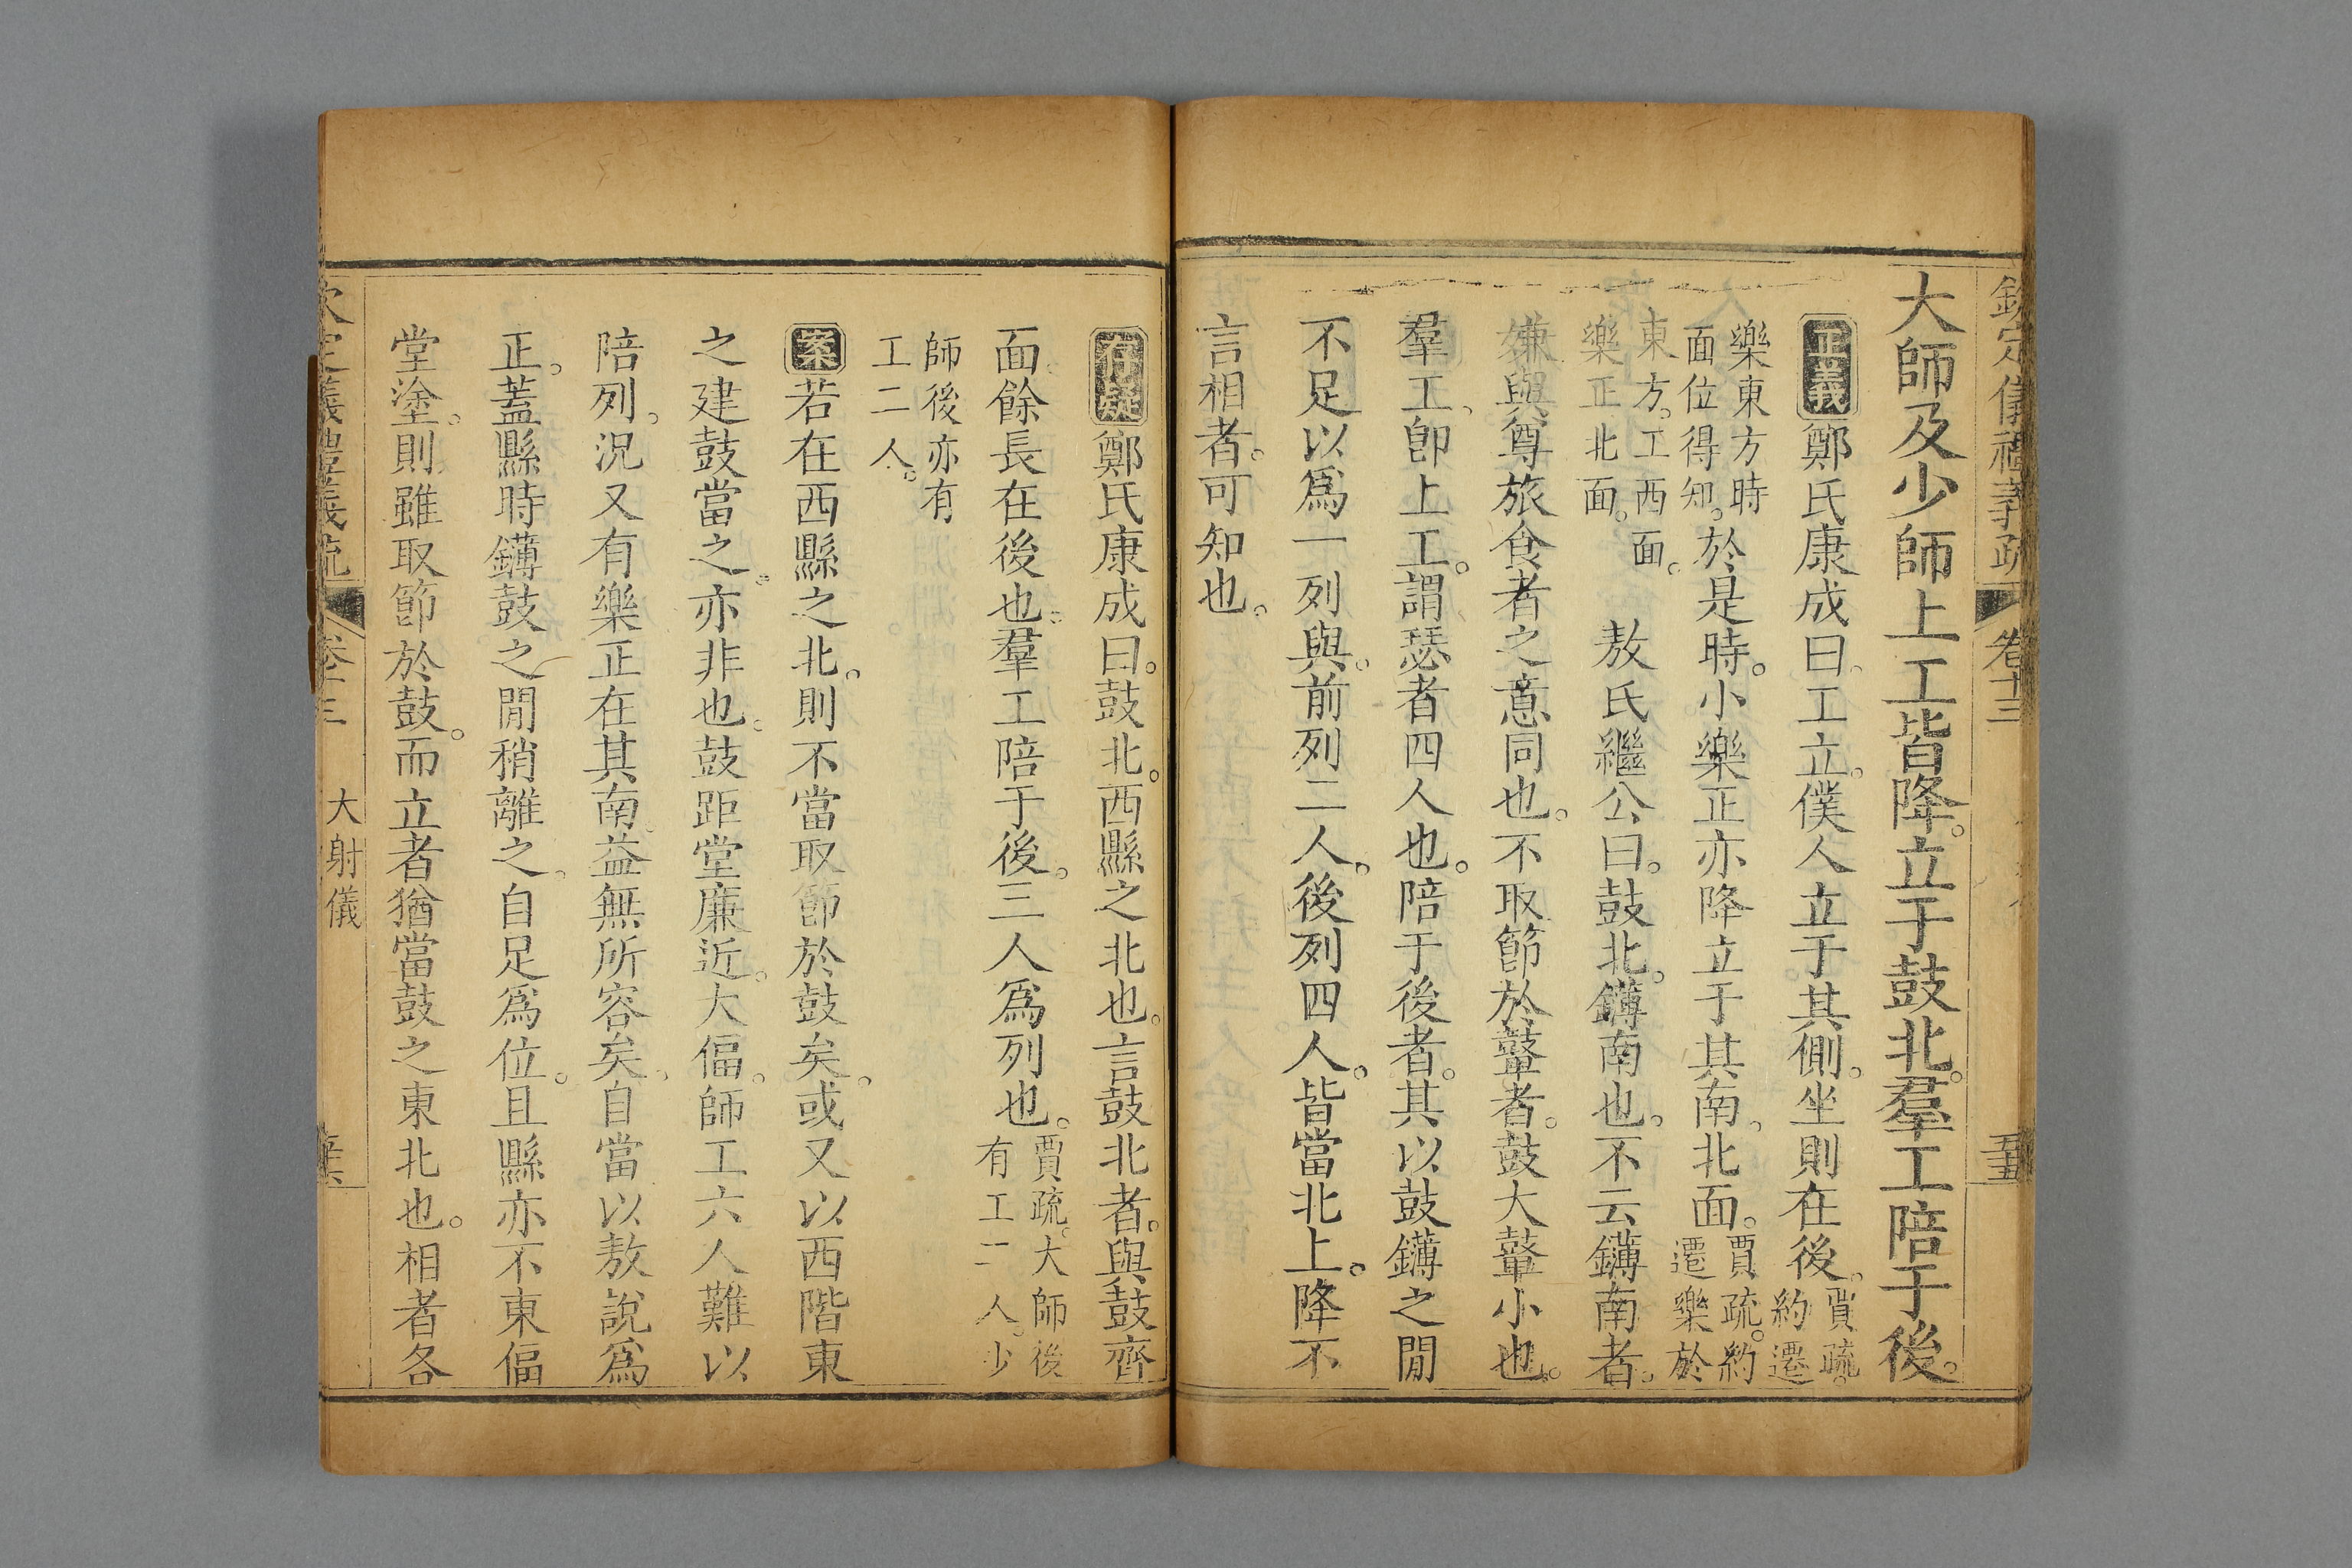 欽定儀禮義疏 卷十三 五五
大師及少師上工皆降。立于鼓北。羣工陪于後。
正義 鄭氏康成曰。工立。僕人立于其側。坐則在後。賈疏。約遷
樂東方時面位得知。於是時。小樂正亦降立于其南。北面。賈疏。約遷樂於
東方。工西面。樂正北面。 敖氏繼公曰。鼓北。鑮南也。不云鑮南者。
嫌與尊旅食者之意同也。不取節於鼙者。鼓大鼙小也。
羣工。卽上工。謂瑟者四人也。陪于後者。其以鼓鑮之閒
不足以爲一列與。前列二人。後列四人。皆當北上。降不
言相者。可知也。
存疑 鄭氏康成曰。鼓北。西縣之北也。言鼓北者。與鼓齊
面。餘長在後也。羣工陪于後。三人爲列也。賈疏。大師後有工二人。少
師後亦有工二人。
案 若在西縣之北。則不當取節於鼓矣。或又以西階東
之建鼓當之。亦非也。鼓距堂廉近。大偪。師工六人難以
陪列。況又有樂正在其南。益無所容矣。自當以敖說爲
正。蓋縣時鑮鼓之閒稍離之。自足爲位。且縣亦不東偪
堂塗。則雖取節於鼓。而立者猶當鼓之東北也。相者各
欽定儀禮義疏 卷十三 大射儀